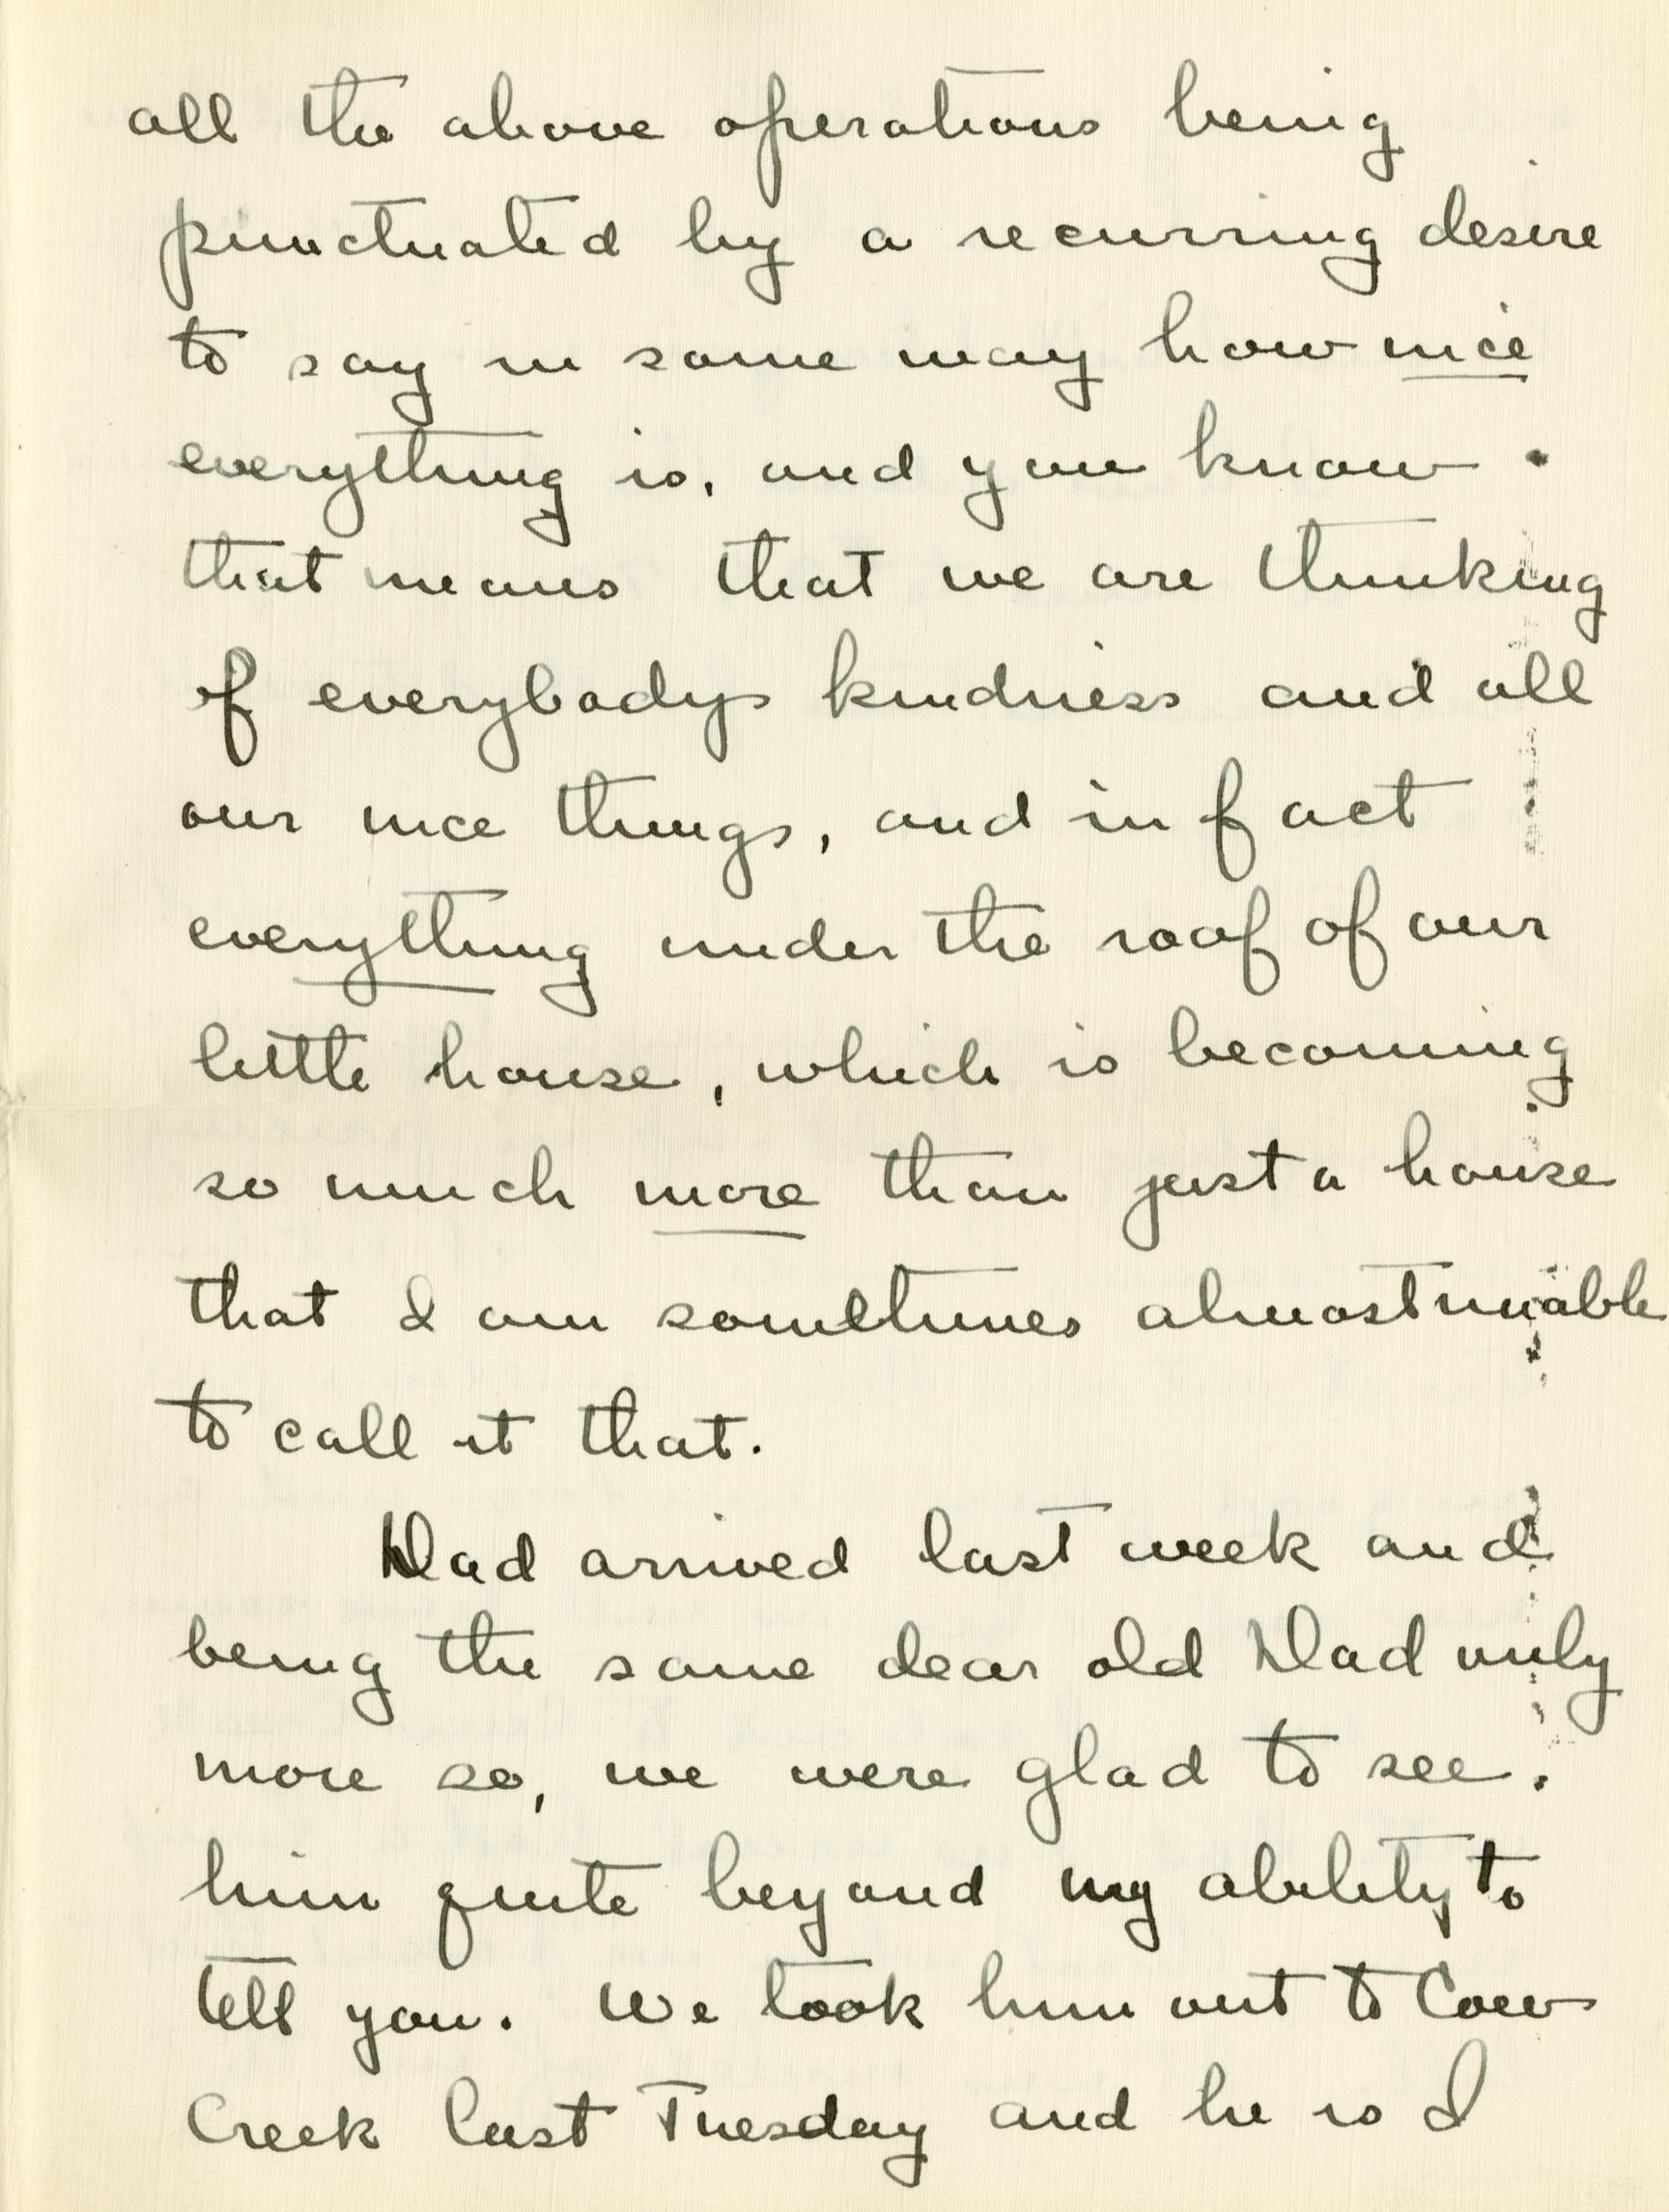 all the above operations being
punctuated by a recurring desire
to say in some way how nice
everything is, and you know
that means that we are thinking
of everybodys kindness and all
our nice things, and in fact
everything under the roof of our
little house, which is becoming
so much more than just a house
that I am sometimes almost unable
to call it that.
Dad arrived last week and
being the same dear old Dad only
more so, we were glad to see
him quite beyond my ability to
tell you. We took him out to Cow
Creek last Tuesday and he is I